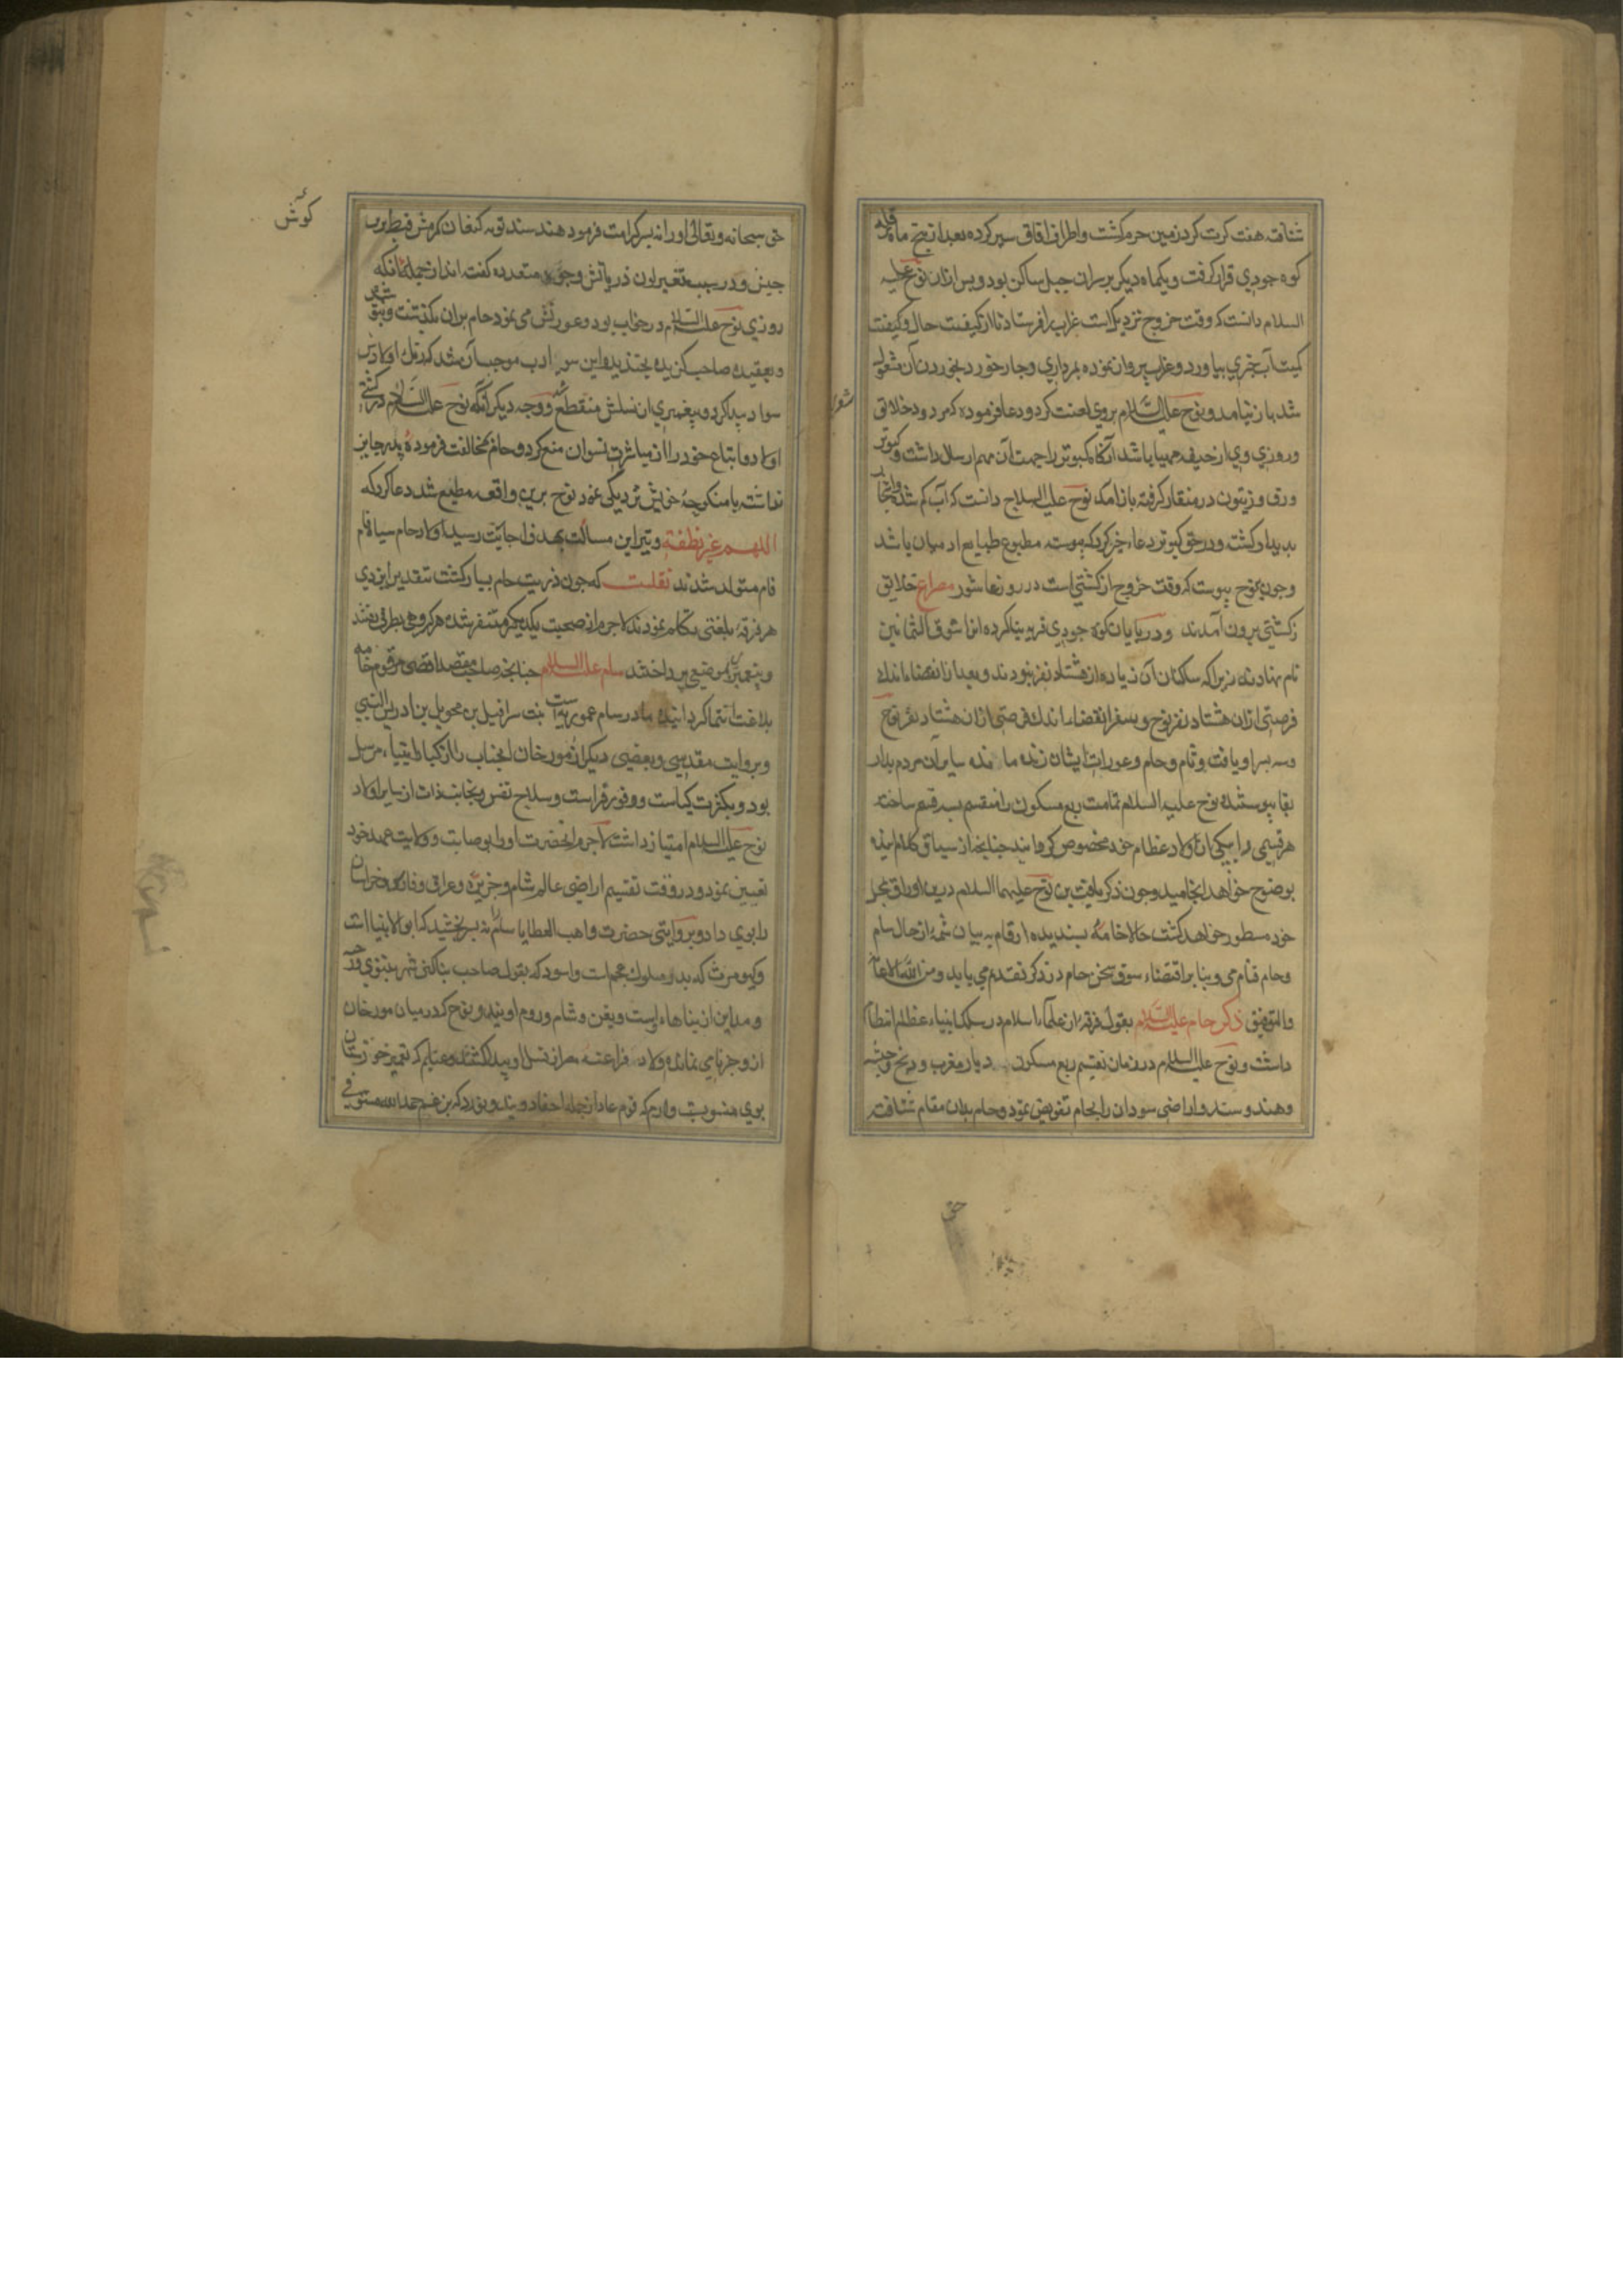 شتافته هفت کرت کرد زمین حرم کشت و اطراف افاق سیر کرده بعد از پنج ماه بر قله
کوه جودی قرار کرفت و یکماه دیکر بر سران جبل ساکن بود و پس ازان نوح علیه
السلام دانست که وقت خروج نزدیک است غراب را فرستاد تا از کیفیت حال و کیفیت
کمیت آب خبری بیاورد و غراب پرواز نموده بمرداری دچار خورد بخوردن آن مشغول
شد باز نیامد و نوح علیه السلام بروی لعنت کرد و دعا فرموده که مردود خلائق
و روزی وی از جیفه مهیا باشد آنکاه کبوتر را جهت آن مهم ارسال داشت و کبوتر
ورق زیتون در منقار کرفته باز آمد نوح علیه السلام دانست که آب کم شده و اشجار
بدیدار کشت و در حق کبوتر دعاء خیر کرد که پیوسته مطبوع طبایع ادمیان باشد
و چون بنوح پیوست که وقت خروج از کشتی است در روز عاشور مصراع خلایق
ز کشتی برون آمدند و در پایان کوه جودی قریه بنا کرده انرا سوق الثمانین
نام نهادند زیرا که ساکنان آن زیاده از هشتاد نفر نبودند و بعد از انقضاء اندک
فرصتی ازان هشتاد نفر نوح
و سه پسر او یافث و سام و حام و عورات ایشان زنده مانده سایر آن مردم بدار
بقا پیوستند نوح علیه السلام تمامت ربع مسکون را منقسم بسه قسم ساخته
هر قسمی را بیکی از اولاد عظام خود مخصوص کردانید چنانچه از سیاق کلام اینده
بوضوح خواهد انجامید و چون ذکر یافث بن نوح علیهما السلام درین اوراق بمحل
خود مسطور خواهد کشت حالا خامه پسندیده ارقام به بیان شمه از حال سام
و حام قیام می و بنا بر اقتضاء سوق سخن حام در ذکر تقدم می یابد و من الله الاعانة
والتوفیق ذکر حام علیه السلام بقول فرقه از علماء اسلام در سلک انبیاء عظام انتظام
داشت و نوح علیه السلام در زمان تقسیم ربع مسکون دیار مغرب و زنج و حبشه
و هند و سند و اراضی سودان را بحام تفویض نمود و حام بدان مقام شتافت
حق
شعر
کوش
حق سبحانه و تعالی او را نه پسر کرامت فرمود هند سند نوبه کنعان کوش قبط بربر
حبش و در سبب تغیر لون ذریاتش وجوه متعدده کفته اند از جمله آنکه
روزی نوح علیه السلام در خواب بود و عورتش می نمود حام بران بکذشت و نپوشید
و بعقیده صاحب کزیده بخندید و این سوء ادب موجب آن شد که رنک اولادش
سواد پیدا کرد و پیغمبری از نسلش منقطع کشت و وجه دیکر آنکه نوح علیه السلام در کشتی
اولاد و اتباع خود را از مباشرت نسوان منع کرد و حام مخالفت فرموده پدر جایز
داشته با منکوحه خویش نزدیکی نمود نوح برین واقعه مطلع شد دعا کرد که
اللهم غیر نطفته و تیر این مسالت بهدف اجابت رسید اولاد حام سیاه فام
فام متولد شدند نقلست که چون ذریت حام بسیار کشتند بتقدیر ایزدی
هر فرقه بلغتی تکلم نمودند لاجرم از صحبت یکدیکر متنفر شده هر کروهی بطرفی رفتند
و بتعمیر موضعی پرداختند سام علیه السلام چنانچه صاحب مقصد اقصی مرقوم خامه
بلاغت انتما کردانیده مادر سام عموریه است بنت سرافیل بن محویل بن ادریس النبی
و بروایت مقدسی و بعضی دیکر از مورخان انجناب را از کبار انبیاء مرسل
بود و بکثرت کیاست و وفور فراست و صلاح نفس و نجابت ذات از سایر اولاد
نوح علیه السلام امتیاز داشت لاجرم آنحضرت او را بوصایت و ولایت عهد خود
تعیین نمود و در وقت تقسیم اراضی عالم شام و جزیره و عراق و فارس و خراسان
را بوی داد و بروایتی حضرت واهب العطایا سام را نه پسر بخشید که ابو الانبیا است
و کیومرث که پدر ملوک عجم است و اسود که بقول صاحب بناکتی شهر
و مداین از بناهاء اوست و یفن و شام و روم اویند و نوح که در میان مورخان
ازو جز نامی نمانده و لاد فراعنه مصر از نسل او پیدا کشتند و عیلم که تعمیر خوزستان
بوی منسوبست و ارم که قوم عاد از جمله احفاد ویند و بورد که بزعم حمدالله مستوفی